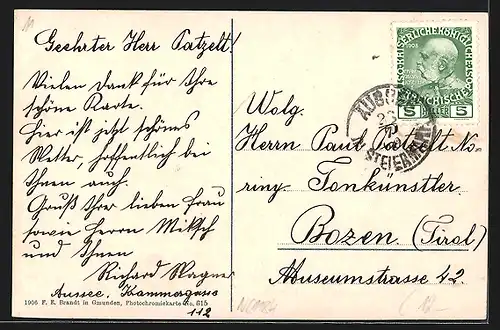 Geehrter Herr Patzelt!
Vielen Dank für Ihre
schöne Karte.
Hier ist jetzt schönes
Wetter, hoffentlich bei
Ihnen auch.
Gruß Ihrer lieben Frau
sowie Herrn Miksch
und Ihnen
Richard Wagner
Aussee, Kammergasse
112
1906 F. E. Brandt in Gmunden, Photochromiekarte No. 615
1908
5 HELLER 5
STEIERMARK
Wolg.
Herrn Paul Patzelt No-
ring. Tonkünstler
Bozen (Tirol)
Museumstrasse 42.